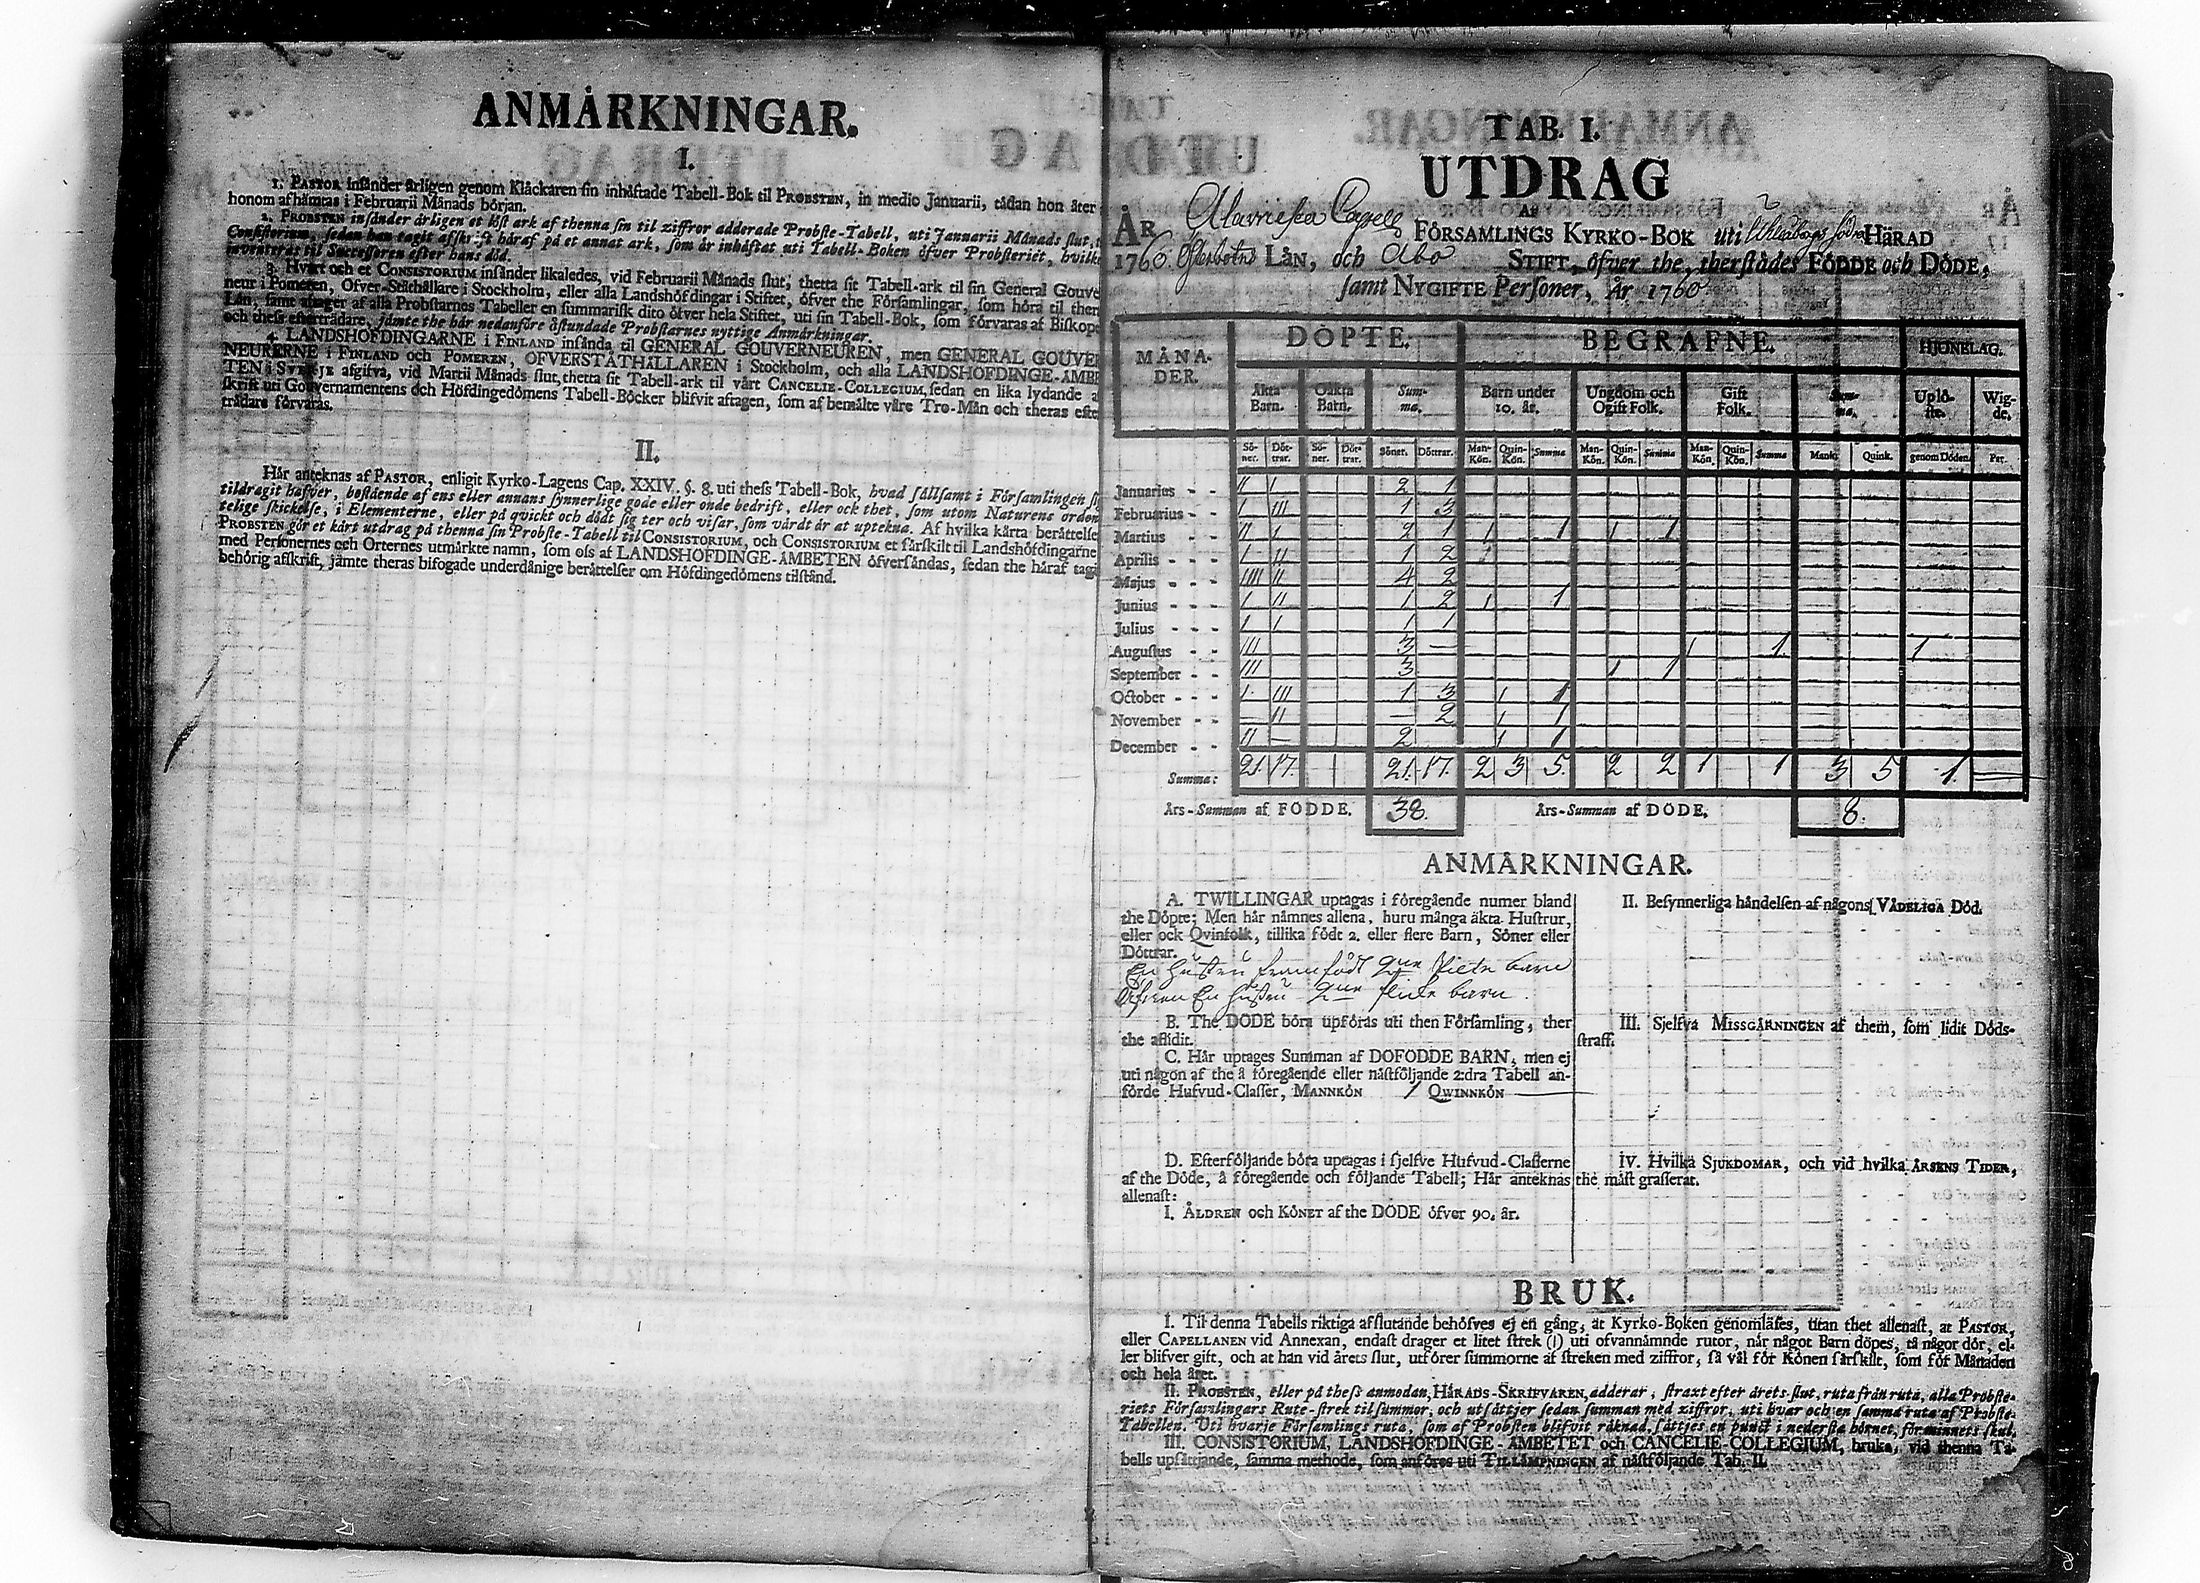 ANMÅRKNINGAR.
I.
1. PASTOR insånder årligen genom Klåckaren sin inhåftade Tabell-Bok til PROBSTEN, in medio Januarii, tådan hon åter
honom afhåmtas i Februarii Månads början.
2. PROBSTEN insånder årligen et löst ark af thenna sin til ziffror adderade Probste-Tabell, uti Januarii Månads slut,
Consistorium, sedan han tagit afskrift håraf på et annat ark, som år inhåftat uti Tabell-Boken öfver Probsteriet, hvilken
inventeras til Successoren efter hans död.
3. Hvart och et CONSISTORIUM insånder likaledes, vid Februarii Månads slut, thetta sit Tabell-ark til sin General Gouver
neur i Pomeren, Öfver-Ståthållare i Stockholm, eller alla Landshöfdingar i Stiftet, öfver the Församlingar, som höra til ther
Lån, samt aftager af alla Probstarnes Tabeller en summarisk dito öfver hela Stiftet, uti sin Tabell-Bok, som förvaras af Biskope
och thess eftertrådare, jåmte the hår nedanföre åstundade Probstarnes nyttige Anmårkningar.
4. LANDSHÖFDINGARNE i FINLAND insånda til GENERAL GOUVERNEUREN, men GENERAL GOUVER
NEURERNE i FINLAND och POMEREN, ÖFVERSTÅTHÅLLAREN i Stockholm, och alla LANDSHÖFDINGE-ÅMBE
TEN i SVERJE afgifva, vid Martii Månads slut, thetta sit Tabell-ark til vårt CANCELIE-COLLEGIUM, sedan en lika lydande a
skrift uti Gouvernamentens och Höfdingedömens Tabell-Böcker blifvit aftagen, som af bemålte våre Tro-Mån och theras efte
trådare förvaras.
II.
Hår anteknas af PASTOR, enligit Kyrko-Lagens Cap. XXIV. §. 8. uti thess Tabell-Bok, hvad sållsamt i Församlingen sig
tildragit hafver, bestående af ens eller annans synnerlige gode eller onde bedrift, eller ock thet, som utom Naturens orden
telige skickelse, i Elementerne, eller på qvickt och dödt sig ter och visar, som vårdt år at uptekna. Af hvilka kårta beråttelse
PROBSTEN gör et kårt utdrag på thenna sin Probste-Tabell til CONSISTORIUM, och CONSISTORIUM et sårskilt til Landshöfdingarne
med Personernes och Orternes utmårkte namn, som oss af LANDSHÖFDINGE-ÅMBETEN öfversåndas, sedan the håraf tagi
behörig afskrift, jåmte theras bifogade underdånige beråttelser om Höfdingedömens tilstånd.
TAB. I.
UTDRAG
AF
ÅR Alavieska Capells FÖRSAMLINGS KYRKO-BOK uti Uhleåborgs södra HÅRAD
1760. Österbotns LÅN, och Åbo STIFT, öfver the, therstådes FÖDDE och DÖDE,
samt NYGIFTE Personer, År 1760
MÅNA-DER. DÖPTE. BEGRAFNE. HJONELAG.
Åkta Barn. Oåkta Barn. Sum-ma. Barn under 10. år. Ungdom och Ogift Folk. Gift Folk. Sum-ma. Uplö-ste. Wig-de.
Sö-ner. Döt-trar. Sö-ner. Döt-trar. Söner. Döttrar. Man-Kön. Quin-Kön. Summa Man-Kön. Quin-Kön. Summa Man-Kön. Quin-Kön. Summa Mank. Quink. genom Döden. Par.
Januarius - - II I 2 1
Februarius - - I III 1 3
Martius - - II I 2 1 1 1 1 1
Aprilis - - - I II 1 2 1
Majus - - - IIII II 4 2
Junius - - - I II 1 2 1 1
Julius - - - I I 1 1
Augustus - - III 3 — 1 1 1
September - - III 3 1 1
October - - - I III 1 3 1 1
November - - — II — 2 1 1
December - - II — 2 1 1
Summa: 21. 17. 21. 17. 2 3 5. 2 2 1 1 3 5 1. —
Års-Summan af FÖDDE. 38. Års-Summan af DÖDE. 8.
ANMÅRKNINGAR.
A. TWILLINGAR uptagas i föregående numer bland
the Döpte; Men hår nåmnes allena, huru många åkta Hustrur,
eller ock Qvinfolk, tillika födt 2. eller flere Barn, Söner eller
Döttrar.
En hustru framfödt 2ne Piete barn
Åfven En hustru 2ne flicke barn.
B. The DÖDE böra upföras uti then Församling, ther
the aflidit.
C. Hår uptages Summan af DÖFÖDDE BARN, men ej
uti någon af the å föregående eller nåstföljande 2:dra Tabell an-
förde Hufvud-Classer, MANNKÖN 1 QWINNKÖN —
D. Efterföljande böra uptagas i sjelfve Hufvud-Classerne
af the Döde, å föregående och följande Tabell; Hår anteknas
allenast:
I. ÅLDREN och KÖNET af the DÖDE öfver 90. år.
II. Besynnerliga håndelsen af någons VÅDELIGA Död.
III. Sjelfva MISSGÅRNINGEN af them, som lidit Döds-
straff.
IV. Hvilka SJUKDOMAR, och vid hvilka ÅRSENS TIDER,
the måst grasserat.
BRUK.
I. Til denna Tabells riktiga afslutande behöfves ej en gång, at Kyrko-Boken genomlåses, utan thet allenast, at PASTOR,
eller CAPELLANEN vid Annexan, endast drager et litet strek (I) uti ofvannåmnde rutor, når något Barn döpes, tå någor dör, el-
ler blifver gift, och at han vid årets slut, utförer summorne af streken med ziffror, så vål för Könen sårskilt, som för Månaden
och hela året.
II. PROBSTEN, eller på thess anmodan, HÅRADS-SKRIFVAREN, adderar, straxt efter årets slut, ruta från ruta, alla Probste-
riets Församlingars Rute-strek til summor, och utsåttjer sedan summan med ziffror, uti hvar och en samma ruta af Probste-
Tabellen. Uti hvarje Församlings ruta, som af Probsten blifvit råknad, såttjes en punct i nedersta hörnet, för minnets skul.
III. CONSISTORIUM, LANDSHÖFDINGE-ÅMBETET och CANCELIE-COLLEGIUM, bruka, vid thenna Ta-
bells upsåttjande, samma methode, som anföres uti TILLÅMPNINGEN af nåstföljande Tab. II.